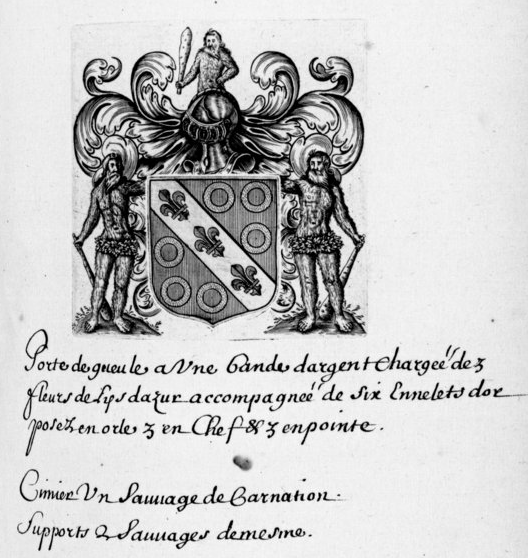 Porte de gueule a Vne bande dargent Chargeé de 3
fleurs de Lys dazur accompagneé de six Ennelets dor
posez en orle 3 en Chef & 3 en pointe.
Cimier Vn Sauuage de Carnation.
Supports 2 Sauuages de mesme.